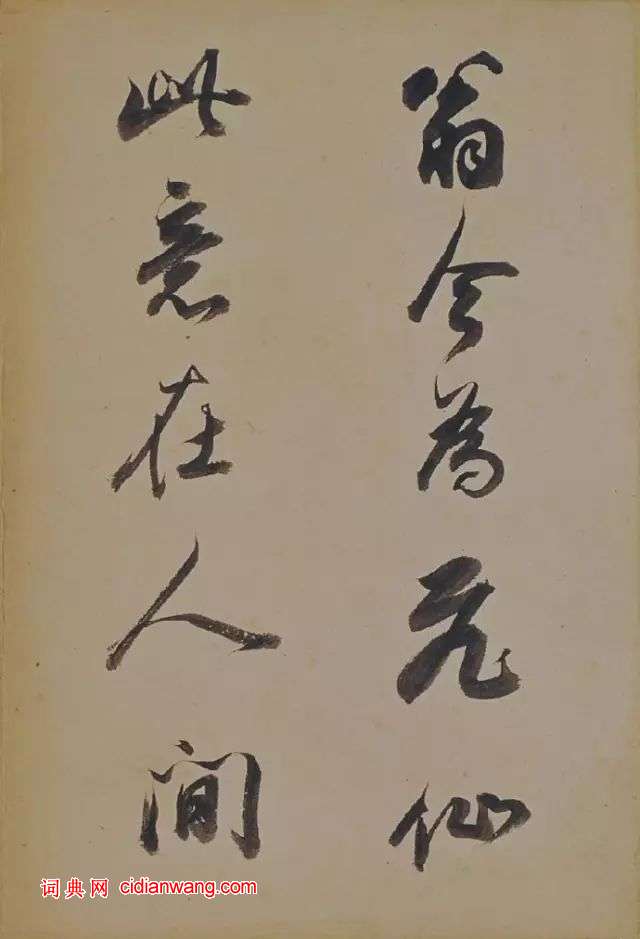 翁今為飛仙
此意在人間
词典网 cidianwang.com